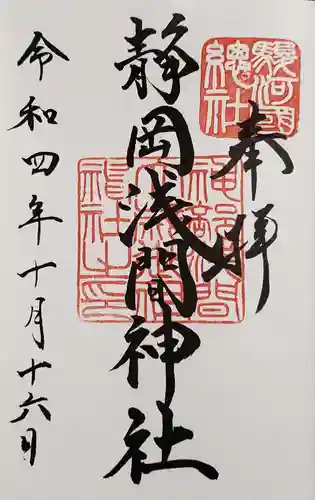 奉拝
駿河国
總社
静岡浅間神社
令和四年十月十六日